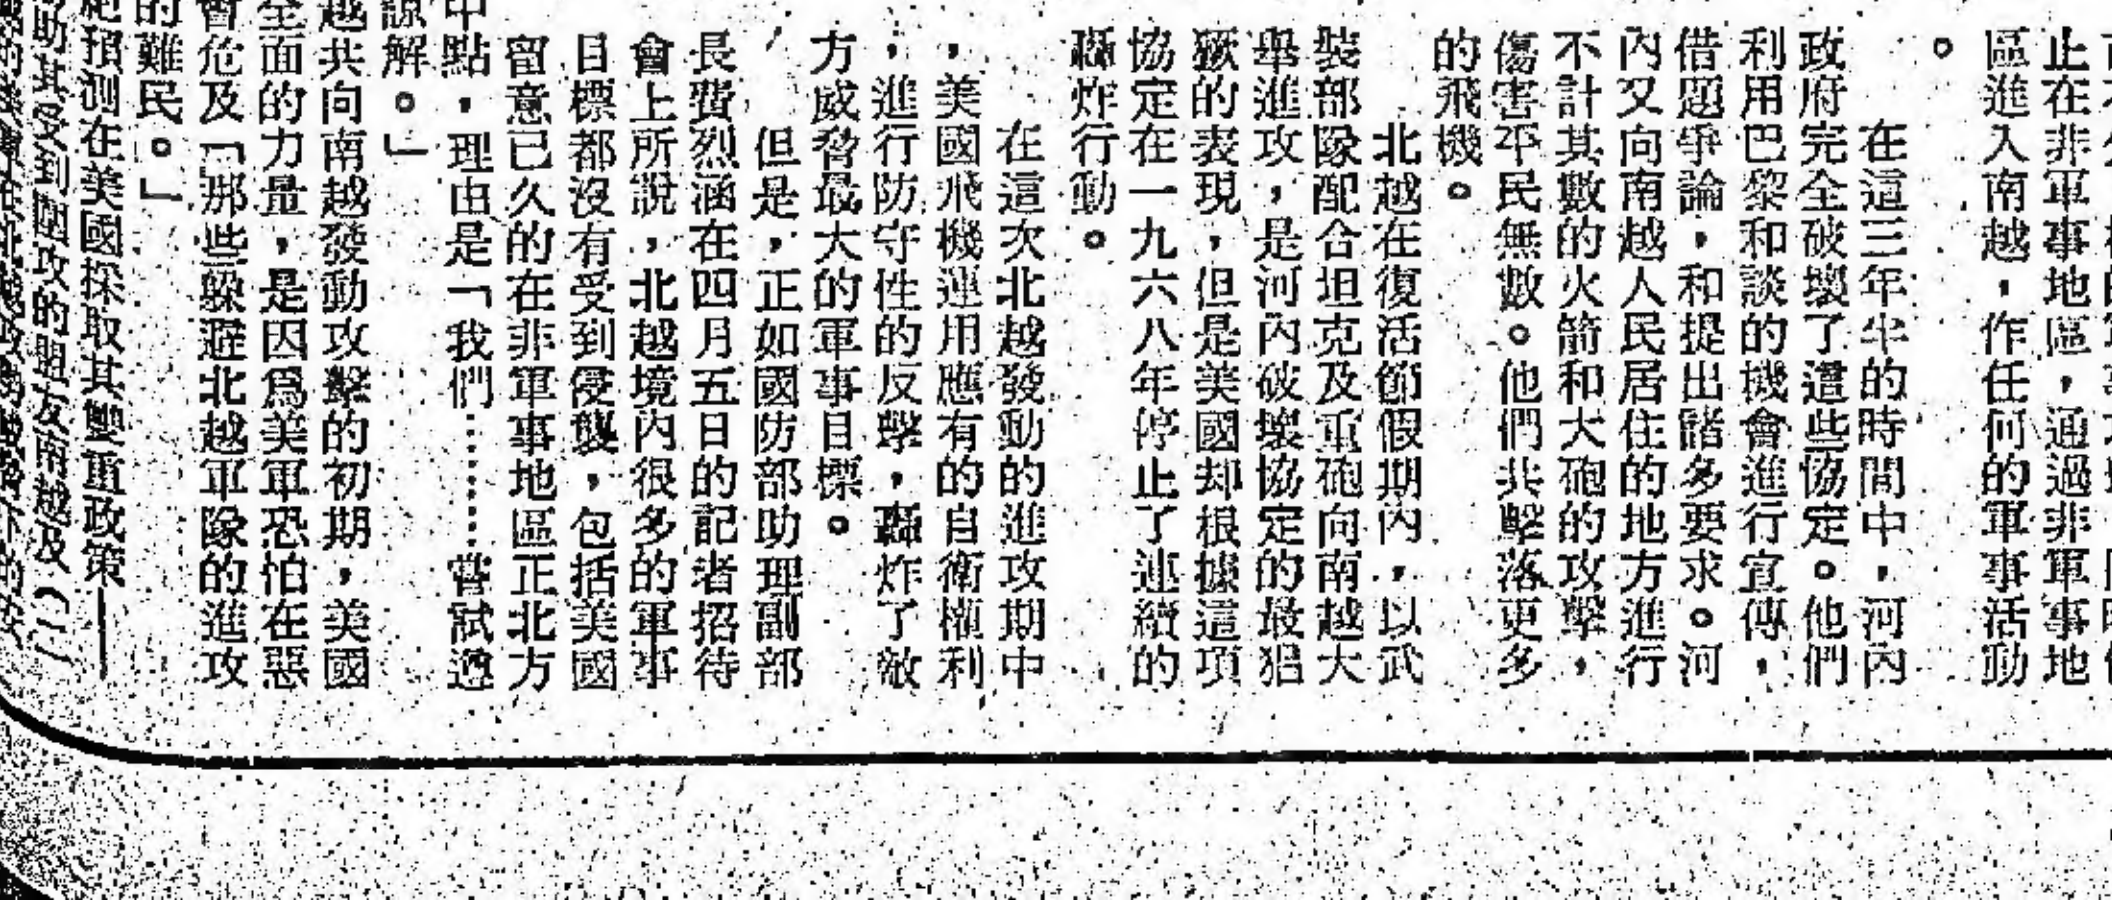 止在非軍事地區，通過非軍事地
區進入南越，作任何的軍事活動
。
在這三年半的時間中，河內
政府完全破壞了這些協定。他們
利用巴黎和談的機會進行宣傳，
借題爭論，和提出諸多要求。河
內又向南越人民居住的地方進行
不計其數的火箭和大砲的攻擊，
傷害平民無數。他們共擊落更多
的飛機。
北越在復活節假期內，以武
裝部隊配合坦克及重砲向南越大
舉進攻，是河內破壞協定的最猖
獗的表現，但是美國却根據這項
協定在一九六八年停止了連續的
轟炸行動。
在這次北越發動的進攻期中
，美國飛機運用應有的自衛權利
，進行防守性的反擊，轟炸了敵
方威脅最大的軍事目標。
但是，正如國防部助理副部
長費烈涵在四月五日的記者招待
會上所說，北越境內很多的軍事
目標都沒有受到侵襲，包括美國
留意已久的在非軍事地區正北方
中點，理由是「我們⋯⋯嘗試過
諒解。」
越共向南越發動攻擊的初期，美國
全面的力量，是因爲美軍恐怕在惡
會危及「那些躲避北越軍隊的進攻
的難民。」
預測在美國採取其雙重政策——
助其受到圍攻的盟友南越及（二）